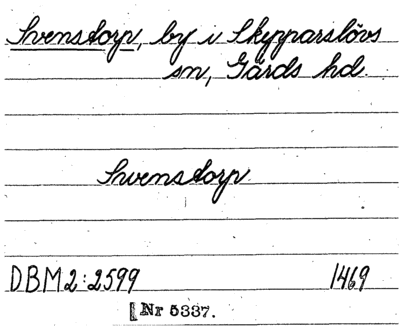 Svenstorp, by i Skypparslövs
sn, Gärds hd.
Swenstorp
DBM2:2599 1469
[Nr 5337.